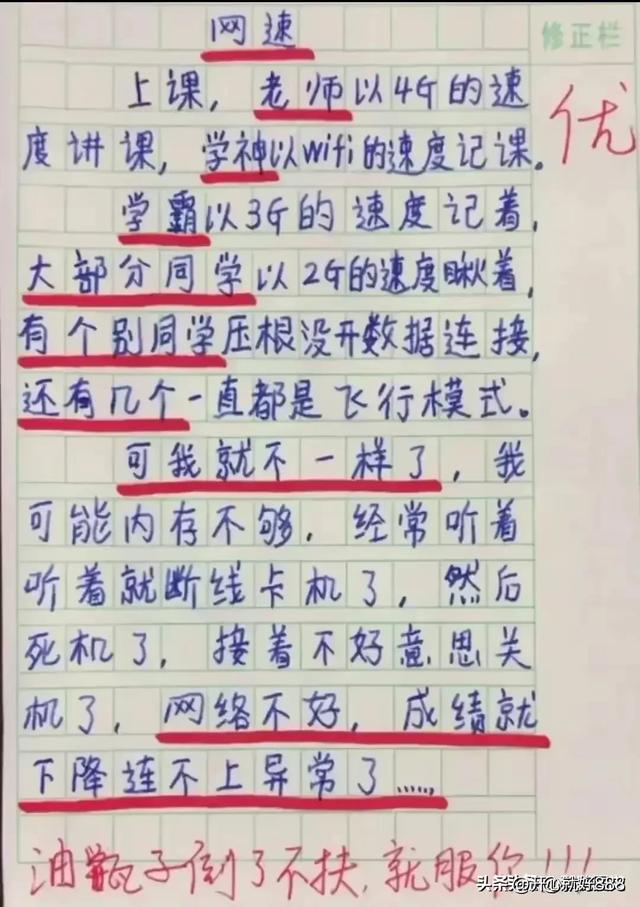 网速
修正栏
上课，老师以4G的速
度讲课，学神以wifi的速度记课。
优
学霸以3G的速度记着，
大部分同学以2G的速度瞅着，
有个别同学压根没开数据连接，
还有几个一直都是飞行模式。
可我就不一样了，我
可能内存不够，经常听着
听着就断线卡机了，然后
死机了，接着不好意思关
机了，网络不好，成绩就
下降连不上异常了……
油瓶子倒了不扶，就服你！！！
头条 @开心就好888